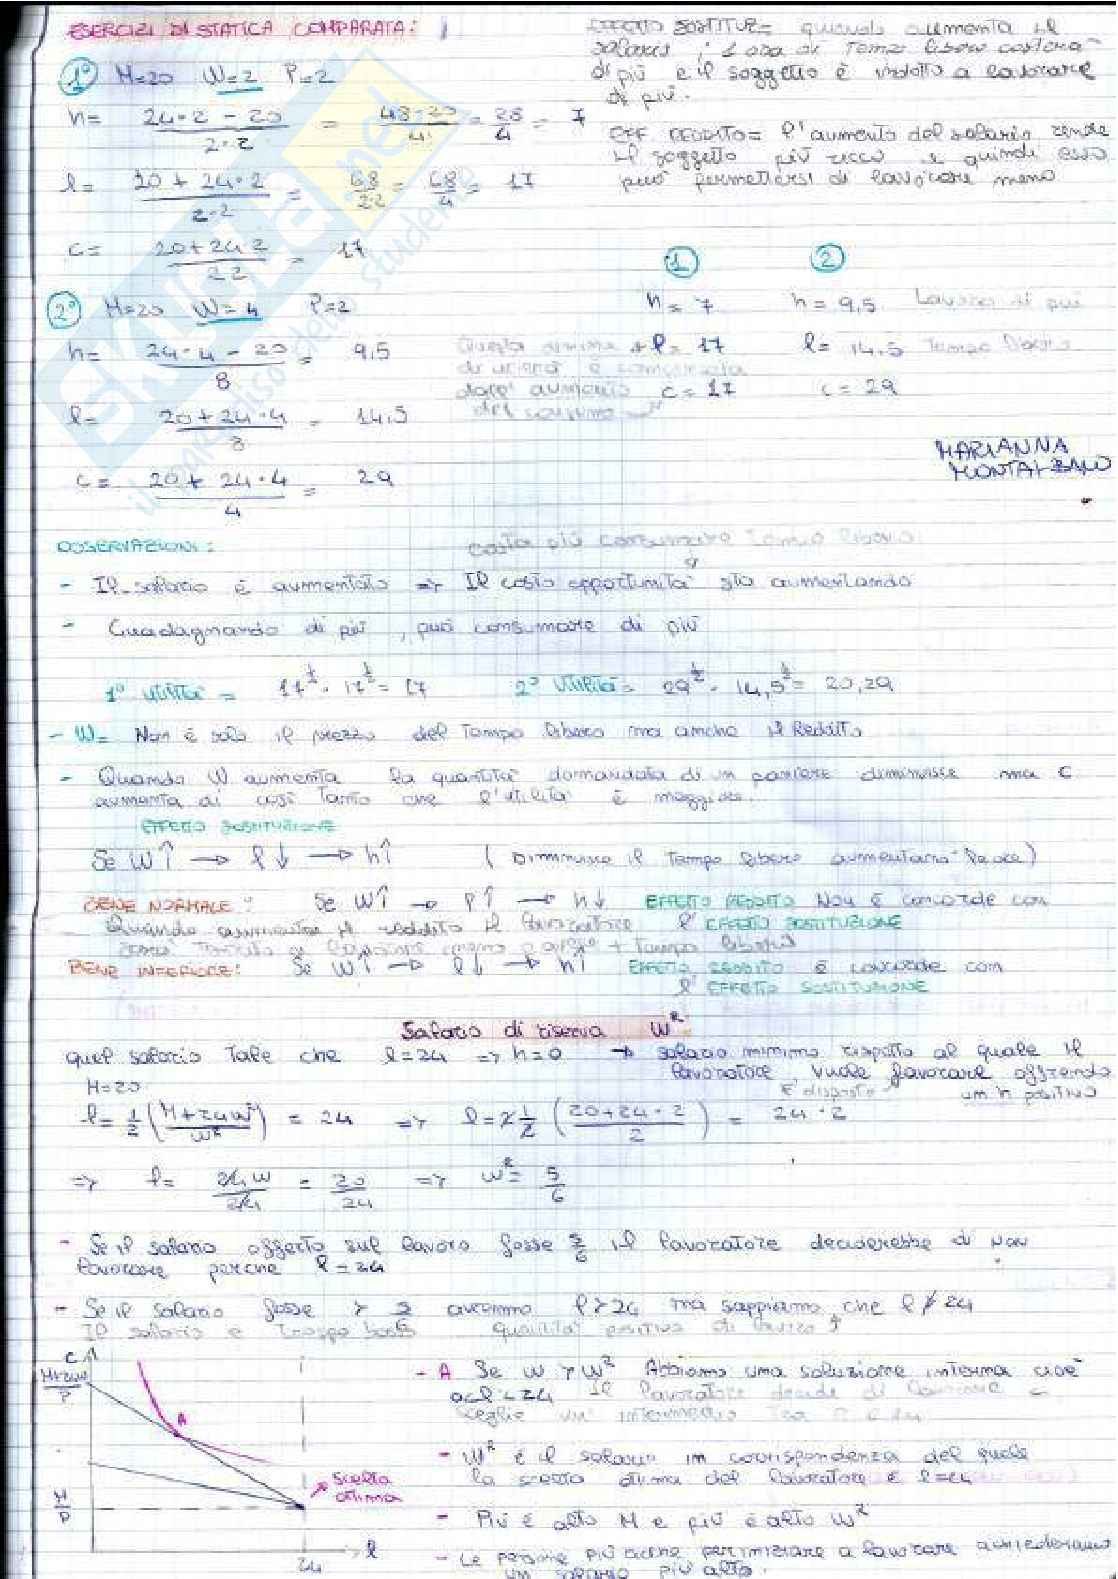 ESERCIZI DI STATICA COMPARATA:
EFFETTO SOSTITUZ = quando aumenta il
salario, 1 ora di tempo libero costerà
di più e il soggetto è indotto a lavorare
di più.
EFF. REDDITO = l'aumento del salario rende
il soggetto più ricco e quindi esso
può permettersi di lavorare meno
1° M=20 W=2 P=2
h= 24·2 - 20 / 2·2 = 48-20 / 4 = 28 / 4 = 7
l= 20 + 24·2 / 2·2 = 68 / 2·2 = 68 / 4 = 17
c= 20+24·2 / 2·2 = 17
2° M=20 W=4 P=2
h= 24·4 - 20 / 8 = 9,5
l= 20+24·4 / 8 = 14,5
c= 20+ 24·4 / 4 = 29
1 2
h= 7 h= 9,5 Lavora di più
l= 17 l= 14,5 Tempo libero
c= 17 c= 29
del consumo
MARIANNA
MONTALBANO
OSSERVAZIONI:
costa più consumare tempo libero
- Il salario è aumentato => Il costo opportunità sta aumentando
- Guadagnando di più, può consumare di più
1° utilità = 17^½ · 17^½ = 17 2° utilità = 29^½ · 14,5^½ = 20,29
- W= Non è solo il prezzo del tempo libero ma anche il Reddito
- Quando W aumenta la quantità domandata di un paniere diminuisce ma c
aumenta di così tanto che l'utilità è maggiore.
EFFETTO SOSTITUZIONE
Se W↑ → l↓ → h↑ (Diminuisce il tempo libero aumentano le ore)
BENE NORMALE: Se W↑ → l↑ → h↓ EFFETTO REDDITO Non è concorde con
l'EFFETTO SOSTITUZIONE
Quando aumenta il reddito il lavoratore
+ tempo libero
BENE INFERIORE: Se W↑ → l↓ → h↑ EFFETTO REDDITO è concorde con
l'EFFETTO SOSTITUZIONE
Salario di riserva W^R
quel salario tale che l=24 => h=0 → salario minimo rispetto al quale il
lavoratore vuole lavorare offrendo
è disposto un h positivo
M=20
l= ½ (M+24W^R / W^R) = 24 => l= 2 ½ (20+24·2 / 2) = 24·2
=> l= 24W / 24 = 20 / 24 => W^R= 5/6
- Se il salario offerto sul lavoro fosse 5/6 il lavoratore deciderebbe di non
lavorare perché l=24
- Se il salario fosse > 5/6 avremmo l>24 ma sappiamo che l≯24
Il salario è troppo basso quantità positiva di lavoro
c
M+24W / P
A
M / P
24
l
scelta
ottima
- A Se W>W^R Abbiamo una soluzione interna cioè
0<l<24 Il lavoratore decide di lavorare e
- W^R è il salario in corrispondenza del quale
la scelta ottima del lavoratore è l=24
- Più è alto M e più è alto W^R
- Le persone più ricche per iniziare a lavorare chiederanno
un salario più alto.